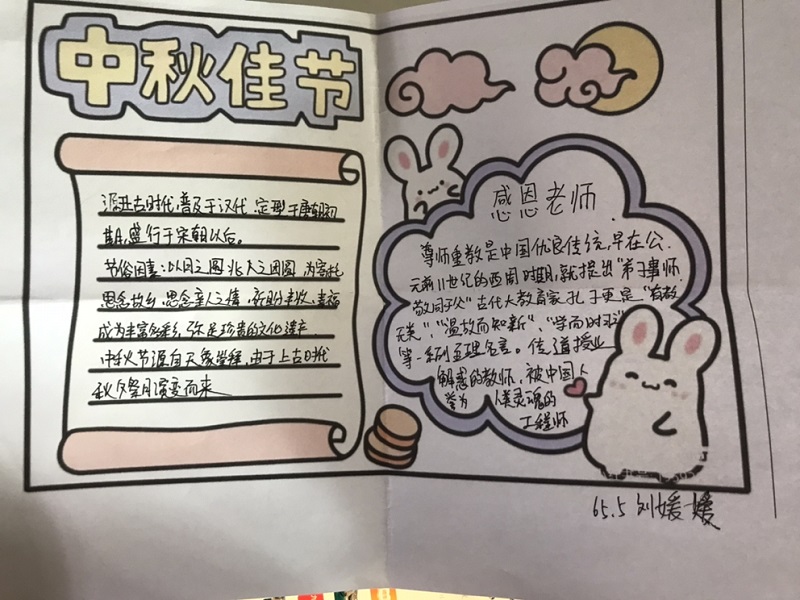 中秋佳节
源丑古时代,普及于汉代.定型于唐朝初
期,盛行于宋朝以后。
节俗因素:以月之圆兆人之团圆,为寄托
思念故乡,思念亲人之情,祈盼丰收、幸福
成为丰富多彩,弥足珍贵的文化遗产
中秋节源自天象崇拜,由于上古时代
秋夕祭月演变而来
感恩老师.
尊师重教是中国优良传统,早在公.
元前11世纪的西周时期,就提出"弟子事师,
敬同于父"古代大教育家孔子更是"有教
无类"、"温故而知新"、"学而时习
等一系列至理名言。传道授业
解惑的教师,被中国人
誉为 人类灵魂的
工程师
65.5 刘媛媛